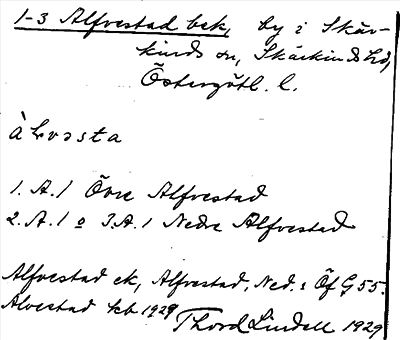 1-3 Alfvestad bek, by i Skär-
kinds sn, Skärkinds hd,
Östergötl. l.
àlvəsta
1. A. 1 Övre Alfvestad
2. A. 1 o 3. A. 1 Nedre Alfvestad
Alfvestad ek, Alfvestad, Ned. : Öf G 55.
Alvestad kb 1929
Thord Lindell 1929